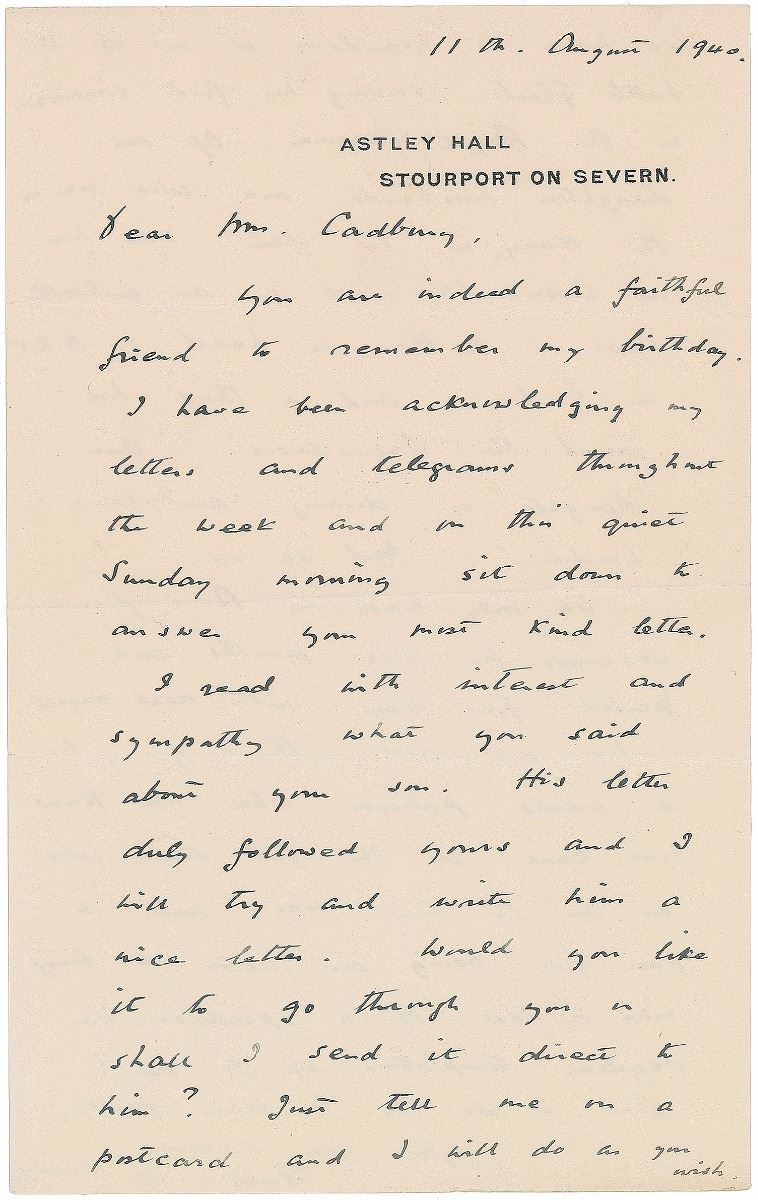 11 th. August 1940.
ASTLEY HALL
STOURPORT ON SEVERN.
Dear Mrs. Cadbury,
you are indeed a faithful
friend to remember my birthday.
I have been acknowledging my
letters and telegrams throughout
the week and on this quiet
Sunday morning sit down to
answer your most kind letter.
I read with interest and
sympathy what you said
about your son. His letter
duly followed yours and I
will try and write him a
nice letter. Would you like
it to go through you or
shall I send it direct to
him? Just tell me on a
postcard and I will do as you
wish.